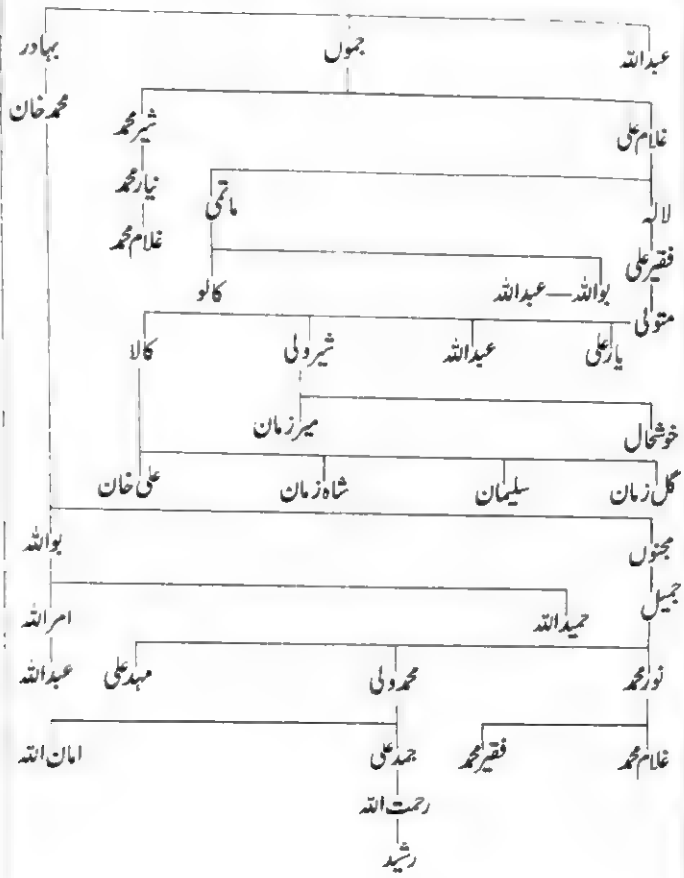 عبداللہ جموں بہادر
محمد خان
غلام علی شیر محمد
نیاز محمد
لالہ ماتمی
غلام محمد
فقیر علی
بواللہ — عبداللہ کالو
متولی
یار علی عبداللہ شیر ولی کالا
خوشحال میر زمان
گل زمان سلیمان شاہ زمان علی خان
مجنوں بواللہ
جمیل
حمید اللہ امر اللہ
نور محمد محمد ولی مہد علی عبداللہ
غلام محمد فقیر محمد جمد علی امان اللہ
رحمت اللہ
رشید